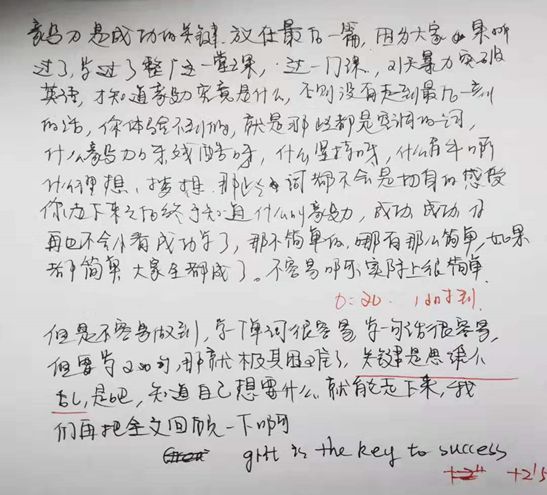 毅力是成功的关键 放在最后一篇,因为大家如果听
过了,学过了整个这一堂课,这一门课,21天暴力突破
英语,才知道毅力究竟是什么,否则没有走到最后一刻
的话,你体会不到的,就是那些都是空洞的词,
什么毅力呀残酷呀,什么坚持呀,什么奋斗啊
什么理想、梦想,那些词都不会是切身的感受
你走下来之后终于知道什么叫毅力,成功,成功,你
再也不会小看成功学了,那不简单的,哪有那么简单,如果
都简单,大家全都成了。不容易啊,实际上很简单
0:20 1时到
但是不容易做到,学个单词很容易,学一句话很容易,
但要学200句,那就极其困难了,关键是思绪不
乱,是吧,知道自己想要什么,就能走下来,我
们再把全文回顾一下啊
grit is the key to success
+2'5